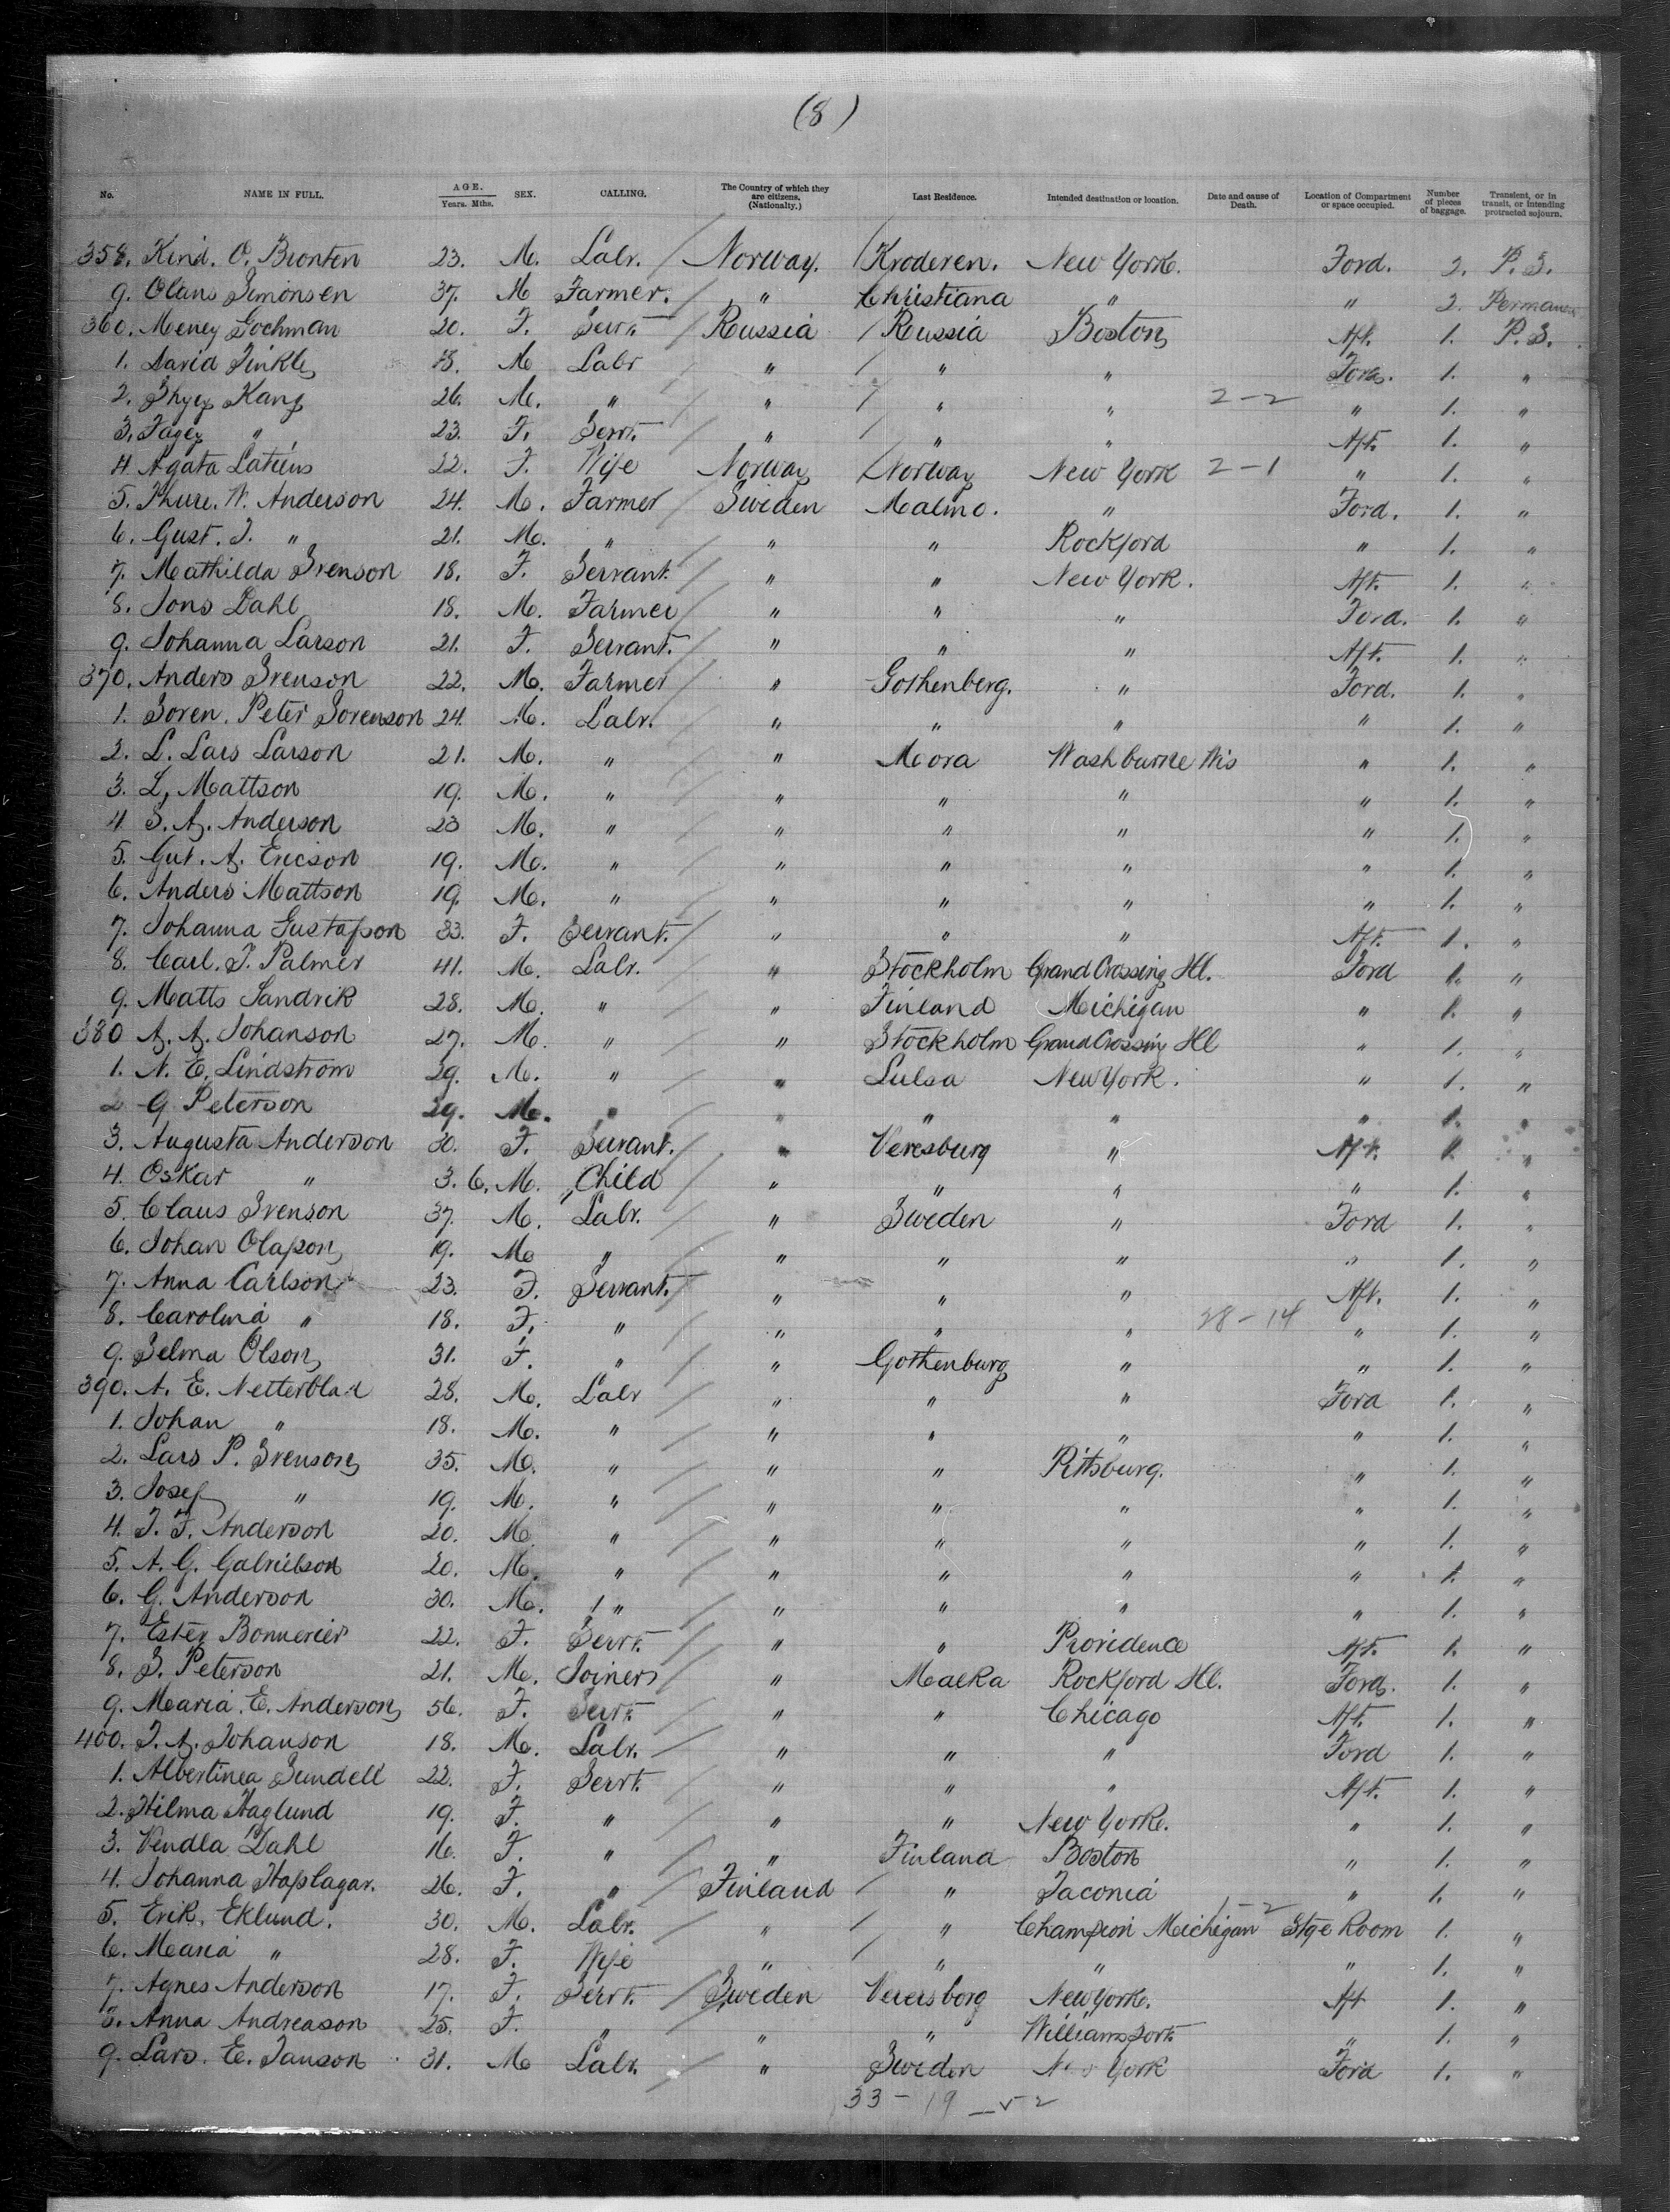 (8)
No. NAME IN FULL. AGE. Years. Mths. SEX. CALLING. The Country of which they are citizens, (Nationality.) Last Residence. Intended destination or location. Date and cause of Death. Location of Compartment or space occupied. Number of pieces of baggage. Transient, or in transit, or intending protracted sojourn.
358. Kind. O. Bronten 23. M. Labr. Norway. Kroderen. New York. Ford. 2. P. S.
9. Olaus Simonsen 37. M Farmer. " Christiana " " 2. Permanent
360. Meney Gochman 20. F. Servt. Russia Russia Boston Aft. 1. P. S.
1. David Finkle 18. M Labr " " " Ford. 1. "
2. Shyey Kang 26. M. " " " " 2-2 " 1. "
3. Fagey " 23. F. Servt. " " " Aft. 1. "
4 Agata Latiens 22. F. Wife Norway Norway New York 2-1 " 1. "
5. Thure. W. Anderson 24. M. Farmer Sweden Malmo. " Ford. 1. "
6. Gust. J. " 21. M. " " " Rockford " 1. "
7. Mathilda Svenson 18. F. Servant. " " New York. Aft. 1. "
8. Jons Dahl 18. M. Farmer " " " Ford. 1. "
9. Johanna Larson 21. F. Servant. " " " Aft. 1. "
370. Anders Svenson 22. M. Farmer " Gothenberg. " Ford. 1. "
1. Soren. Peter Sorenson 24. M. Labr. " " " " 1. "
2. L. Lars Larson 21. M. " " Mora Washburne Wis " 1. "
3. L, Mattson 19. M. " " " " " 1. "
4 S. A. Anderson 23 M. " " " " " 1. "
5. Gut. A. Ericson 19. M. " " " " " 1. "
6. Anders Mattson 19. M. " " " " " 1. "
7. Johanna Gustafson 33. F. Servant. " " " Aft. 1. "
8. Carl. J. Palmer 41. M. Labr. " Stockholm Grand Crossing Ill. Ford 1. "
9. Matts Sandvik 28. M. " " Finland Michigan " 1. "
380 A. A. Johanson 27. M. " " Stockholm Grand Crossing Ill " 1. "
1. N. E. Lindstrom 29. M. " " Lulsa New York. " 1. "
2 G Peterson 29. M. " " " " " 1. "
3. Augusta Anderson 30. F. Servant. " Veresburg " Aft. 1. "
4. Oskar " 3. 6. M. Child " " " " 1. "
5. Claus Svenson 37. M. Labr. " Sweden " Ford 1. "
6. Johan Olafson 19. M " " " " " 1. "
7. Anna Carlson 23. F. Servant. " " " Aft. 1. "
8. Carolina " 18. F. " " " " 28-14 " 1. "
9. Selma Olson 31. F. " " Gothenburg " " 1. "
390. A. E. Netterblad 28. M. Labr " " " Ford 1. "
1. Johan " 18. M. " " " " " 1. "
2. Lars P. Svenson 35. M. " " " Pittsburg. " 1. "
3. Josef " 19. M. " " " " " 1. "
4. J. F. Anderson 20. M. " " " " " 1. "
5. A. G. Gabrielson 20. M. " " " " " 1. "
6. G. Anderson 30. M. " " " " " 1. "
7. Ester Bonnerier 22. F. Servt. " " Providence Aft. 1. "
8. S. Peterson 21. M. Joiner " Maeka Rockford Ill. Ford. 1. "
9. Maria. E. Anderson 56. F. Servt. " " Chicago Aft. 1. "
400. J. A. Johanson 18. M. Labr. " " " Ford 1. "
1. Albertinea Sundell 22. F. Servt. " " " Aft. 1. "
2. Hilma Haglund 19. F. " " " New York. " 1. "
3. Vendla Dahl 16. F. " " Finland Boston " 1. "
4. Johanna Haplagar. 26. F. " Finland " Taconia " 1. "
5. Erik. Eklund. 30. M. Labr. " " Champion Michigan 1-2 Stge Room 1. "
6. Maria " 28. F. Wife " " " " 1. "
7. Agnes Anderson 17. F. Servt. Sweden Venersborg New York. Aft 1. "
8. Anna Andreason 25. F. " " " Williamsport " 1. "
9. Lars. E. Janson 31. M Labr. " Sweden New York Ford 1. "
33-19